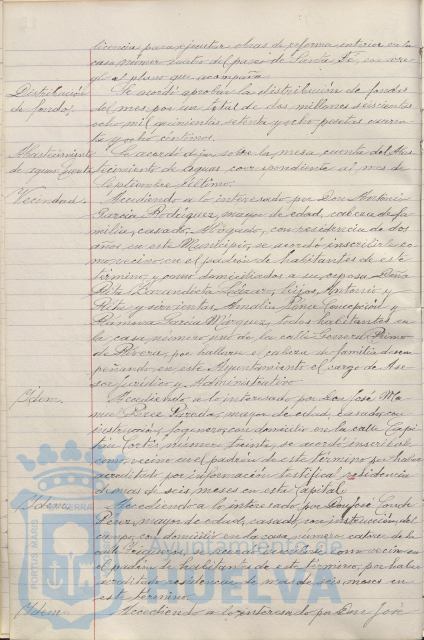 licencia para ejecutar obras de reforma interior en la
casa número cuatro del paseo de Santa Fé, con arre-
glo al plano que acompaña.
Distribución
de fondos.
Se acordó aprobar la distribución de fondos
del mes por un total de dos millones seiscientas
ocho mil quinientas setenta y ocho pesetas cuaren-
ta y ocho céntimos.
Abastecimiento
de aguas, cuenta
Se acordó dejar sobre la mesa cuenta del Abas-
tecimiento de Aguas correspondiente al mes de
Septiembre último.
Vecindad.
Accediendo a lo interesado por Don Antonio
García Rodríguez, mayor de edad, cabeza de fa-
milia, casado, Abogado, con residencia de dos
años en este Municipio, se acordó inscribirle co-
mo vecino en el padrón de habitantes de este
término, y como domiciliados a su esposa Doña
Rita hijos, Antonio y
Rita y sirvientas, Amalia Ponce Concepción y
Ramona García Márquez, todos habitantes en
la casa número uno de la calle General Primo
de Rivera, por hallarse el cabeza de familia desem-
peñando en este Ayuntamiento el cargo de Ase-
sor Jurídico y Administrativo.
Idem.
Accediendo a lo interesado por Don José Ma-
nuel Pérez mayor de edad, casado, con
instrucción, fogonero, con domicilio en la calle Capi-
tán Cortés, número treinta, se acordó inscribirle
como vecino en el padrón de este término por haber
acreditado por información testifical residencia
de mas de seis meses en esta Capital.
Idem.
Accediendo a lo interesado por Don José Conde
Pérez, mayor de edad, casado, con instrucción, del
campo, con domicilio en la casa número catorce de la
calle se acordó inscribirle como vecino en
el padrón de habitantes de este término, por haber
acreditado residencia de mas de seis meses en
este término.
Idem.
Accediendo a lo interesado por Don José
PORTUS MARIS
Ayuntamiento de
HUELVA